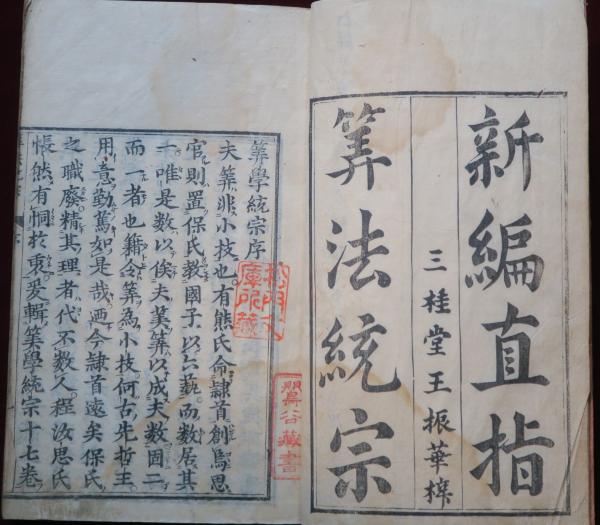 新編直指
三桂堂王振華梓
筭法統宗
筭學統宗序
夫筭非小技也有熊氏命隸首創焉思
官則置保氏教國子以六藝而數居其
一唯是數以俟夫筭以成夫數固二
而一者也籍令筭為小技何古先哲王
用意勤篤如是哉迺今隸首遠矣保氏
之職廢精其理者代不數人程汝思氏
悵然有恫於衷爰輯筭學統宗十七卷
庫所藏
谷藏書